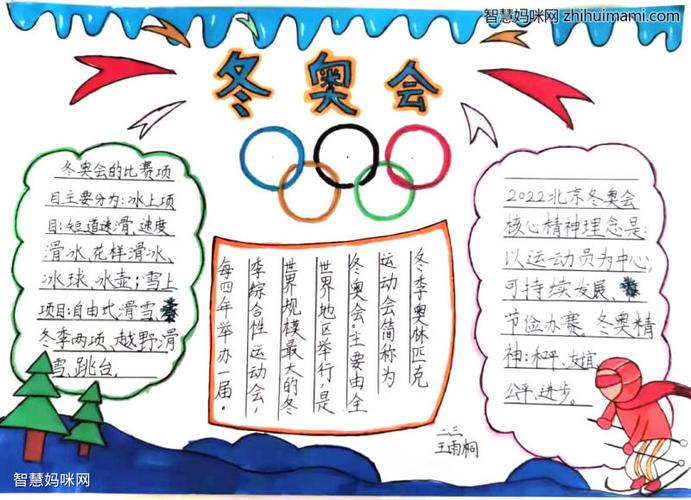 智慧妈咪网 zhihuimami.com
冬奥会
冬奥会的比赛项
目主要分为:冰上项
目:短道速滑、速度
滑冰、花样滑冰、
冰球、冰壶;雪上
项目:自由式滑雪、
冬季两项、越野滑
雪、跳台.
冬季奥林匹克
运动会简称为
冬奥会。主要由全
世界地区举行,是
世界规模最大的冬
季综合性运动会,
每四年举办一届。
2022北京冬奥会
核心精神理念是:
以运动员为中心,
可持续发展、
节俭办赛、冬奥精
神:和平、友谊、
公平、进步。
二、三
王雨桐
智慧妈咪网